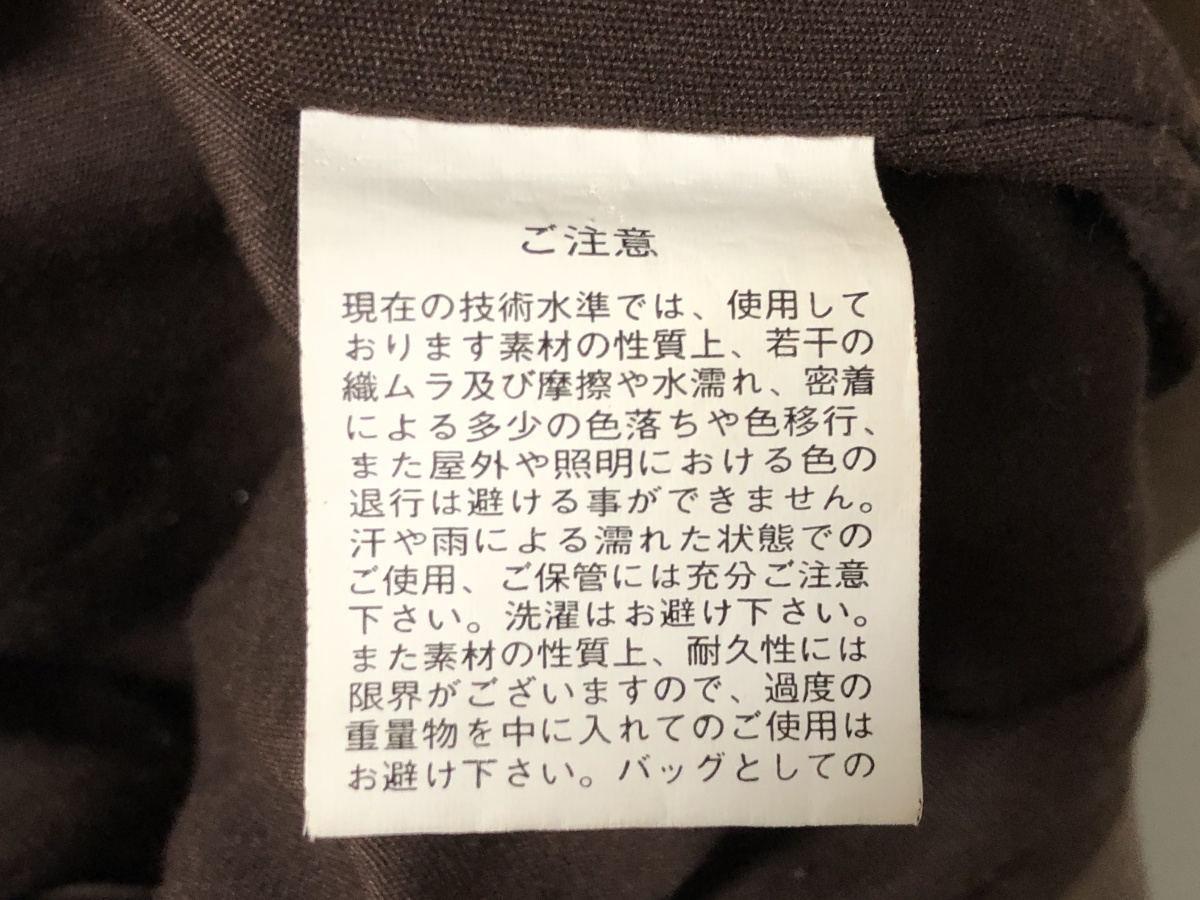 ご注意
現在の技術水準では、使用して
おります素材の性質上、若干の
織ムラ及び摩擦や水濡れ、密着
による多少の色落ちや色移行、
また屋外や照明における色の
退行は避ける事ができません。
汗や雨による濡れた状態での
ご使用、ご保管には充分ご注意
下さい。洗濯はお避け下さい。
また素材の性質上、耐久性には
限界がございますので、過度の
重量物を中に入れてのご使用は
お避け下さい。バッグとしての